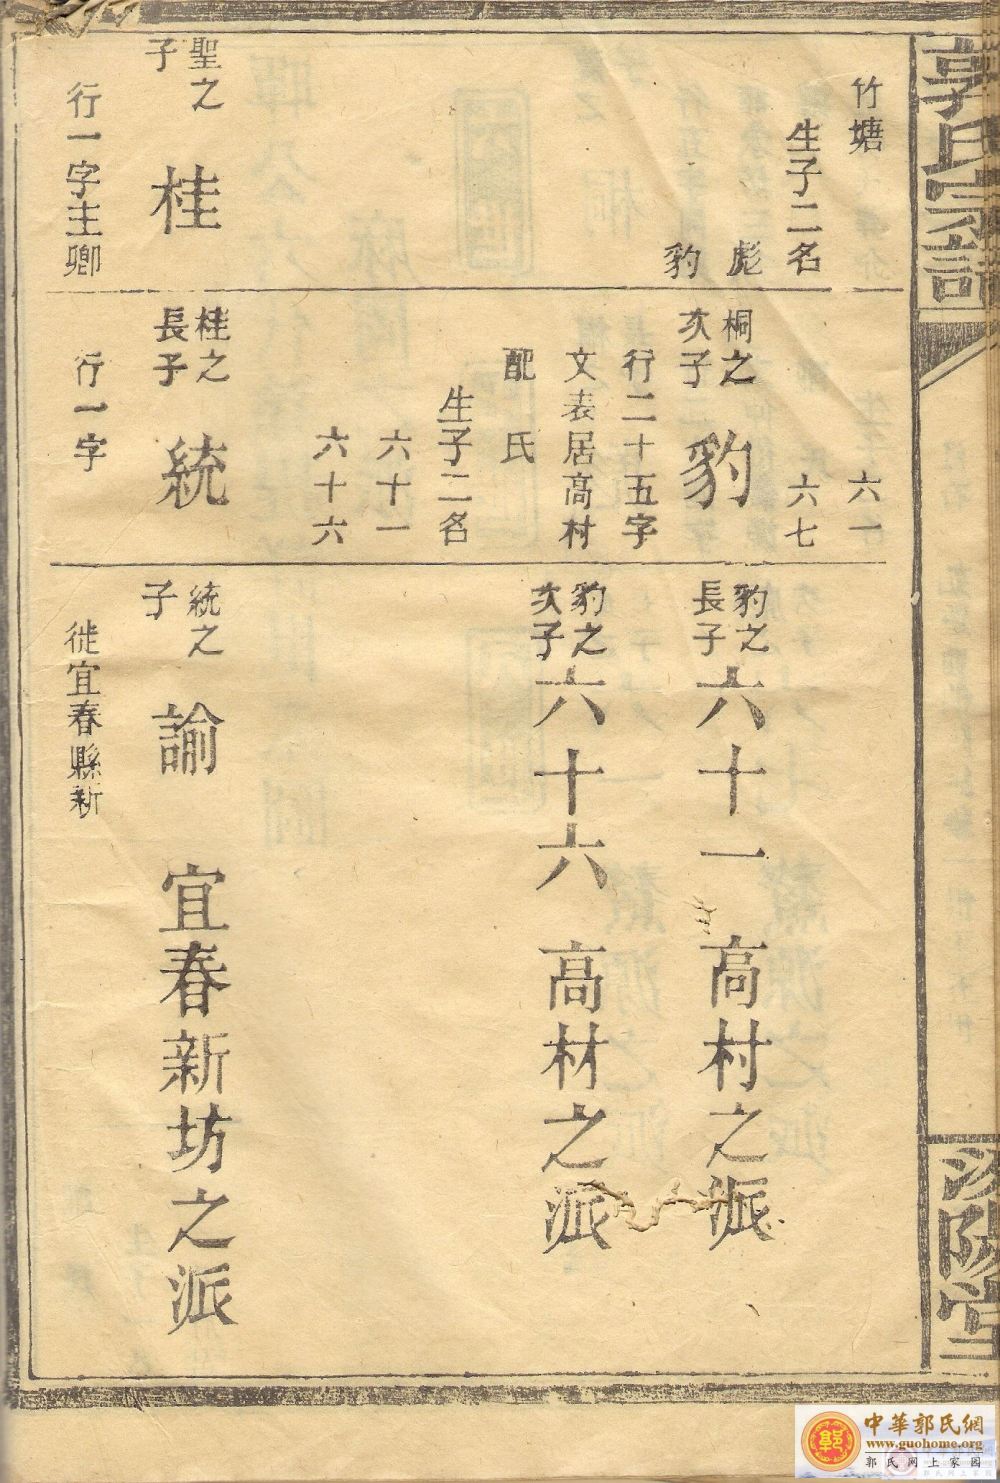 郭氏宗譜
竹塘
生子二名
彪
豹
聖之
子
桂
行一字主卿
六一
六七
桐之
次子
豹
行二十五字
文表居高村
配 氏
生子二名
六十一
六十六
桂之
長子
統
行一字
豹之
長子
六十一 高村之派
豹之
次子
六十六 高村之派
統之
子
諭 宜春新坊之派
徙宜春縣新
汾陽堂
中華郭氏網
www.guohome.org
郭氏网上家园